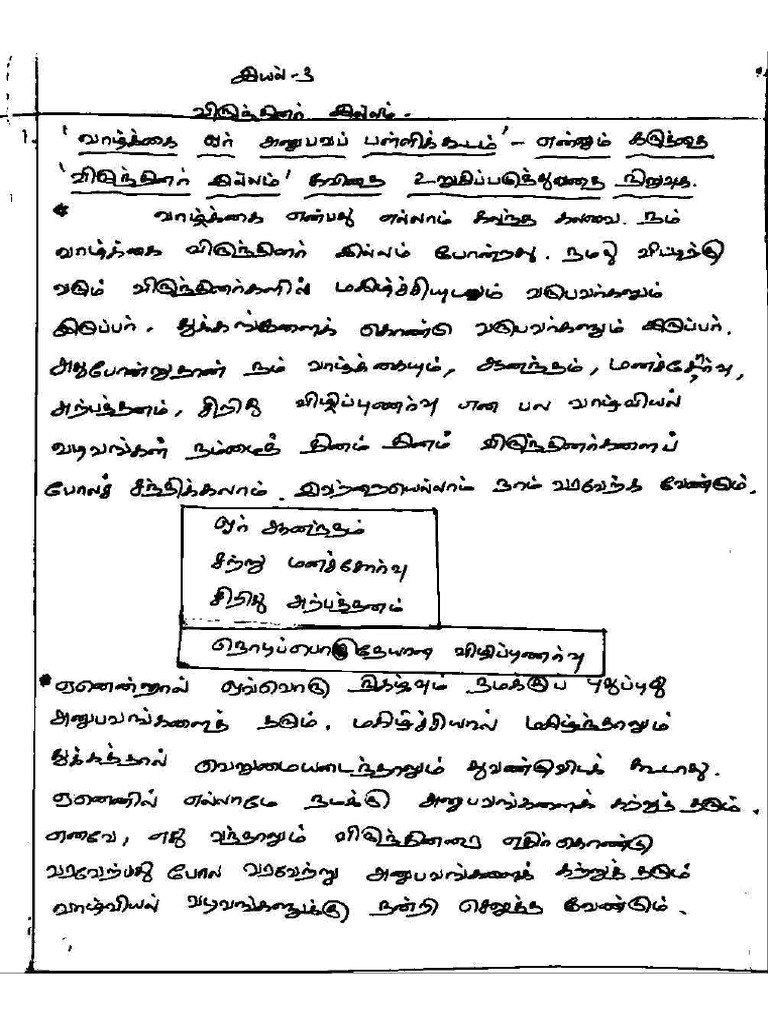 இயல்-3
விருந்தினர் இல்லம்.
1. 'வாழ்க்கை ஓர் அனுபவப் பள்ளிக்கூடம்' - என்னும் கருத்தை
'விருந்தினர் இல்லம்' கவிதை உறுதிப்படுத்துவதை நிறுவுக.
* வாழ்க்கை என்பது எல்லாம் கலந்த கலவை. நம்
வாழ்க்கை விருந்தினர் இல்லம் போன்றது. நமது வீட்டிற்கு
வரும் விருந்தினர்களில் மகிழ்ச்சியுடனும் வருபவர்களும்
இருப்பர். துக்கங்களைக் கொண்டு வருபவர்களும் இருப்பர்.
அதுபோன்றுதான் நம் வாழ்க்கையும், ஆனந்தம், மனச்சோர்வு,
அற்பத்தனம், சிறிது விழிப்புணர்வு என பல வாழ்வியல்
வடிவங்கள் நம்மைத் தினம் தினம் விருந்தினர்களைப்
போலச் சந்திக்கலாம். இவற்றையெல்லாம் நாம் வரவேற்க வேண்டும்.
ஓர் ஆனந்தம்
சற்று மனச்சோர்வு
சிறிது அற்பத்தனம்
நொடிப்பொழுதேயான விழிப்புணர்வு
* ஏனென்றால் ஒவ்வொரு நிகழ்வும் நமக்குப் புதுப்புது
அனுபவங்களைத் தரும். மகிழ்ச்சியால் மகிழ்ந்தாலும்
துக்கத்தால் வெறுமையடைந்தாலும் துவண்டுவிடக் கூடாது.
ஏனெனில் எல்லாமே நமக்கு அனுபவங்களைக் கற்றுத் தரும்.
எனவே, எது வந்தாலும் விருந்தினரை எதிர்கொண்டு
வரவேற்பது போல வரவேற்று அனுபவங்களைக் கற்றுத் தரும்
வாழ்வியல் வடிவங்களுக்கு நன்றி செலுத்த வேண்டும்.